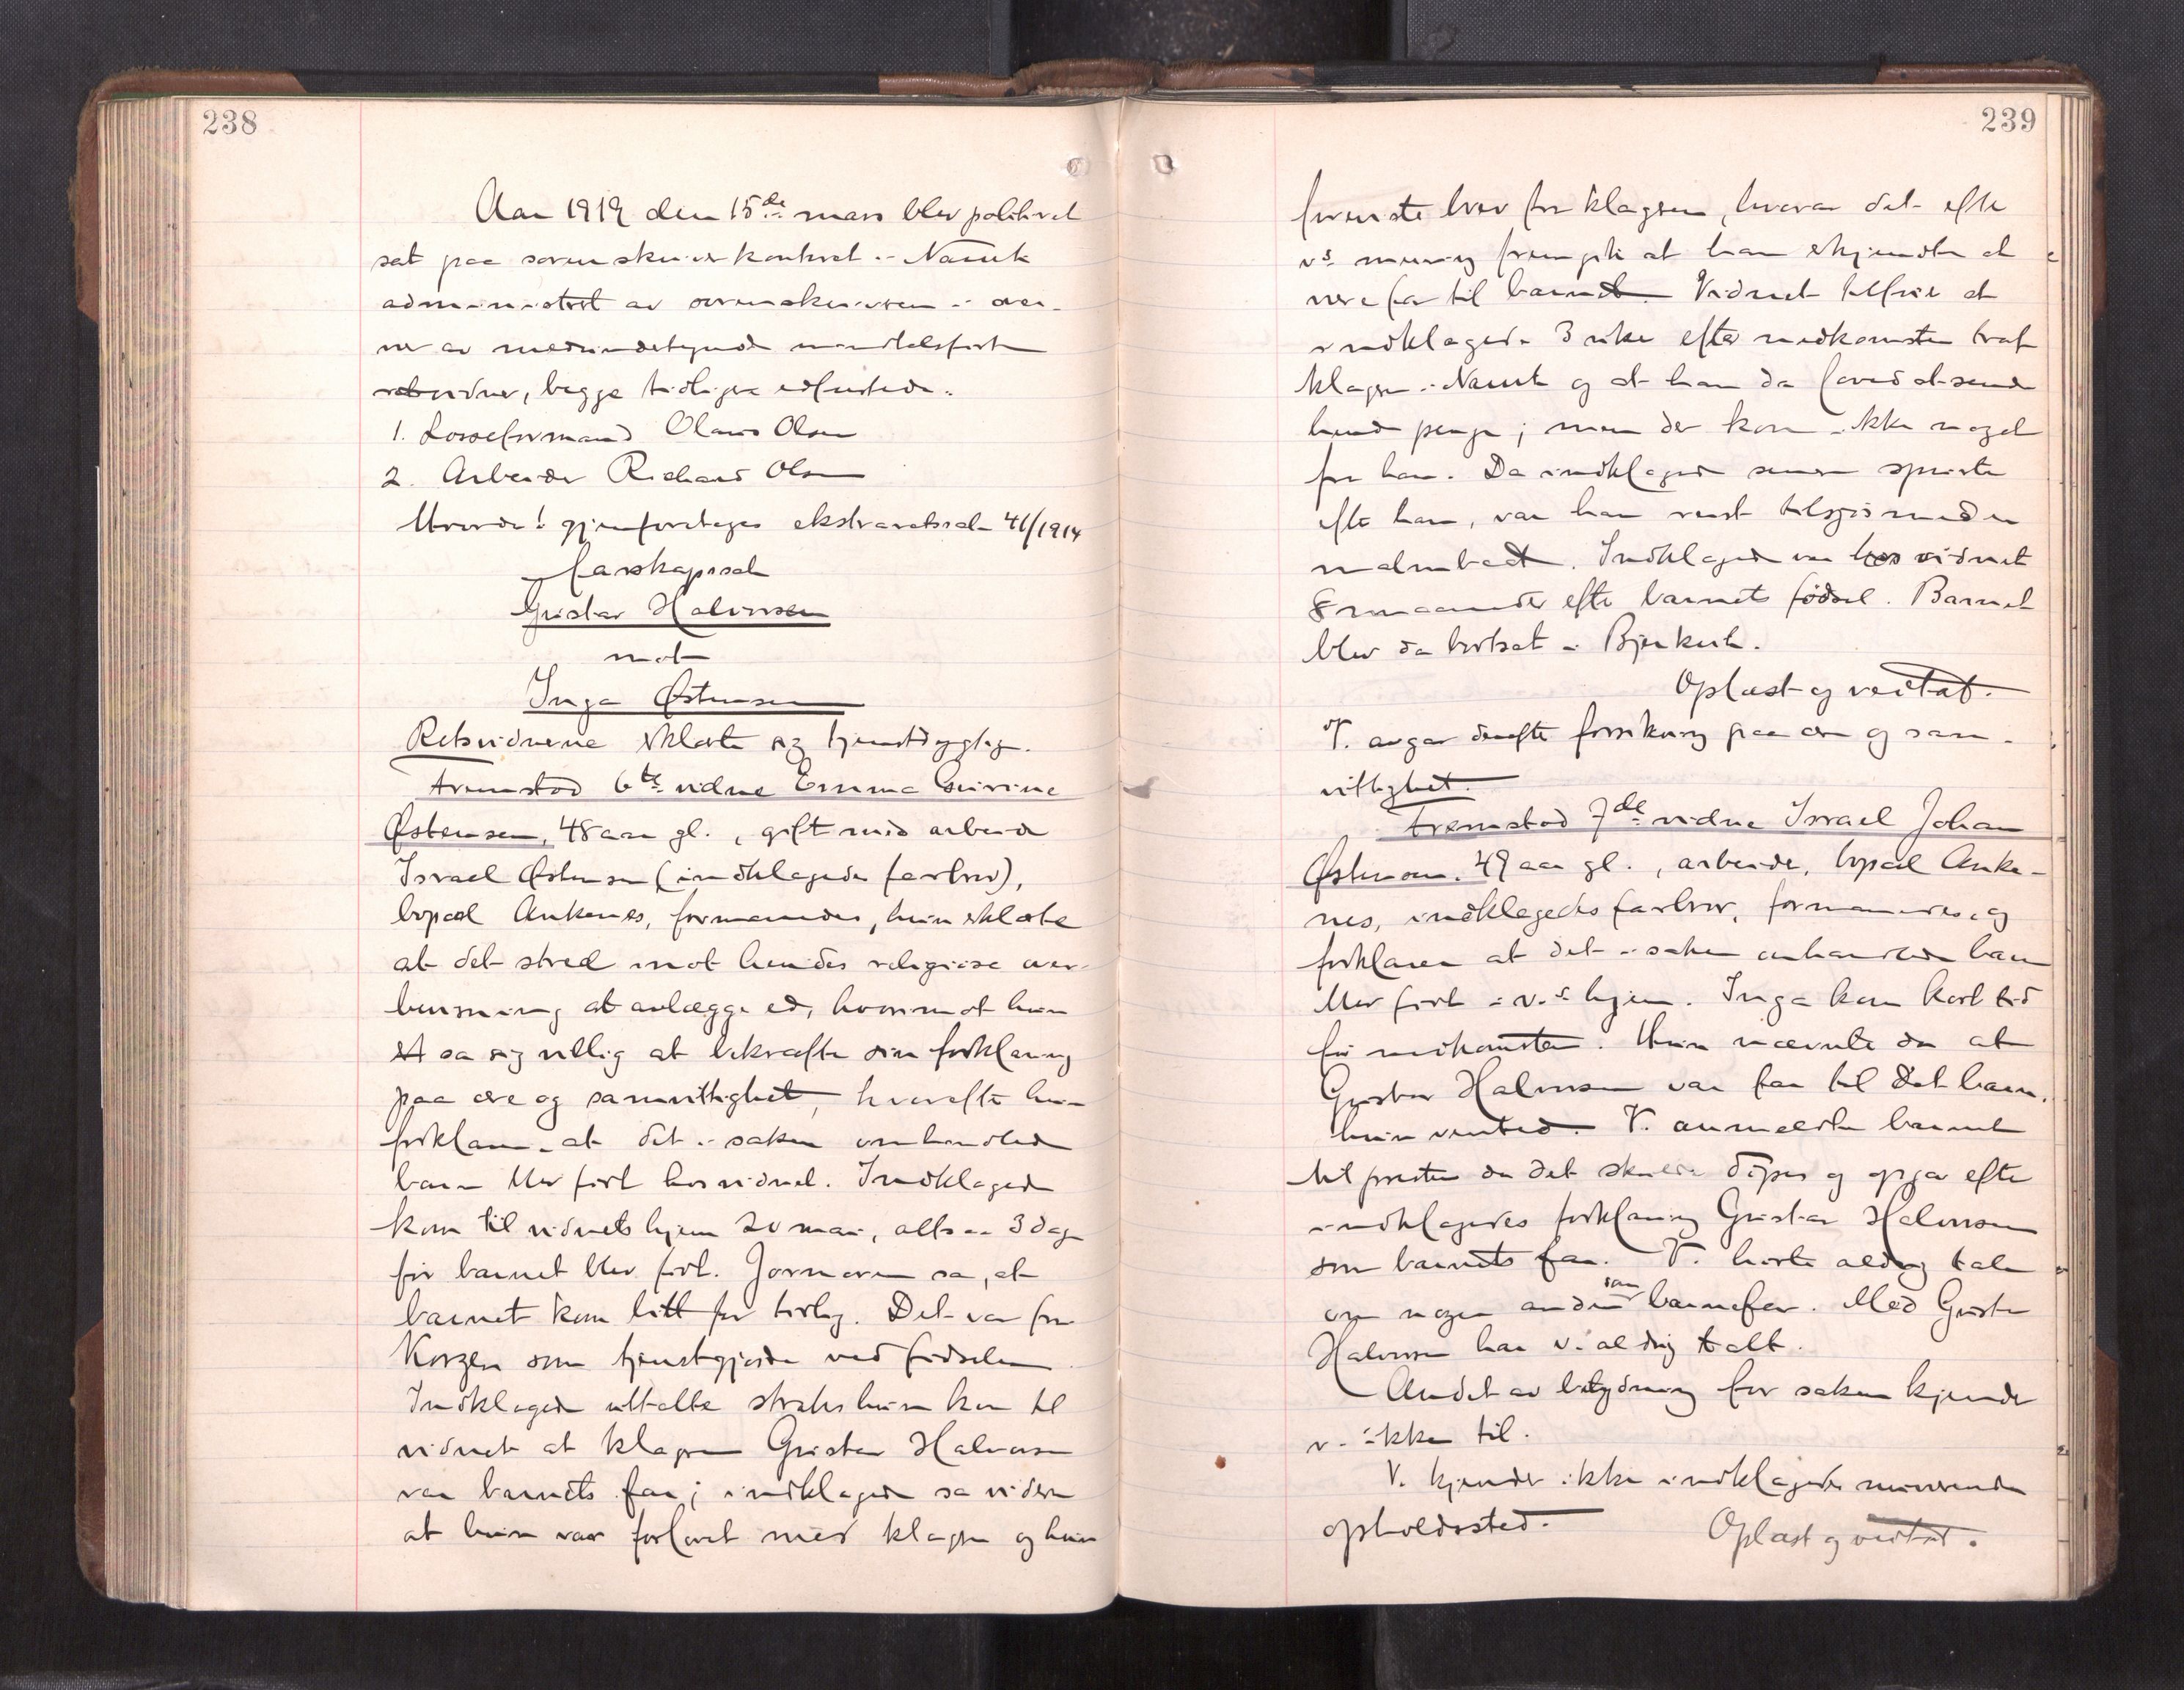 238
Aar 1919 den 15de mars blev politiret
sat paa sorenskriverkontoret i Narvik
administrert av sorenskriveren i over-
vær av medundertegnede mandtalsførte
retsvidner, begge tidligere edfæstede.
1. Losseformand Olaus Olsen
2. Arbeider Richard Olsen
Hvorda! gjenforetages ekstraretssak 41/1914
farskapssak
Gustav Halvorsen
mot
Inga Østensen
Retsvidnerne erklærte sig tjenstdygtige.
Fremstod 6te vidne Emma Guirine
Østensen, 48 aar gl., gift med arbeider
Israel Østensen (indklagedes farbror),
bopæl Ankenes, formanedes, hun erklærte
at det stred imot hendes religiøse over-
bevisning at avlægge ed, hvorimot hun
sa sig villig at bekræfte sin forklaring
paa ære og samvittighet, hvorefter hun
forklarer at det i saken omhandlede
barn blev født hos vidnet. Indklagede
kom til vidnets hjem 20 mai, altsaa 3 dage
før barnet blev født. Jormoren sa, at
barnet kom litt for tidlig. Det var fru
Korzen som tjenstgjorde ved fødselen.
Indklagede uttalte straks hun kom til
vidnet at klageren Gustav Halvorsen
var barnets far; indklagede sa videre
at hun var forlovet med klageren og hun
239
foreviste brev fra klageren, hvorav det efter
v.s mening fremgik at han erkjendte at
være far til barnet. Vidnet tilføier at
indklagede 3 uker efter nedkomsten traf
klageren i Narvik og at han da lovet at sende
hende penge; men der kom ikke noget
fra ham. Da indklagede senere spurte
efter ham, var han reist tilsjøs med en
malmbaat. Indklagede var hos vidnet
8 maaneder efter barnets fødsel. Barnet
blev da bortsat i Bjerkvik.
Oplæst og vedtat.
V. avgav derefter forsikring paa ære og sam-
vittighet.
Fremstod 7de vidne Israel Johan
Østensen, 49 aar gl., arbeider, bopæl Anke-
nes, indklagedes farbror, formanedes, og
forklarer at det i saken omhandlede barn
blev født i v.s hjem. Inga kom kort tid
før nedkomsten. Hun nævnte da at
Gustav Halvorsen var far til det barn,
hun ventet. V. anmeldte barnet
til presten da det skulde døpes og opgav efter
indklagedes forklaring Gustav Halvorsen
som barnets far. V. hørte aldrig tale
om nogen anden som barnefar. Med Gustav
Halvorsen har v. aldrig talt.
Andet av betydning for saken kjender
v. ikke til.
V. kjender ikke indklagedes nuværende
opholdssted.
Oplæst og vedtat.